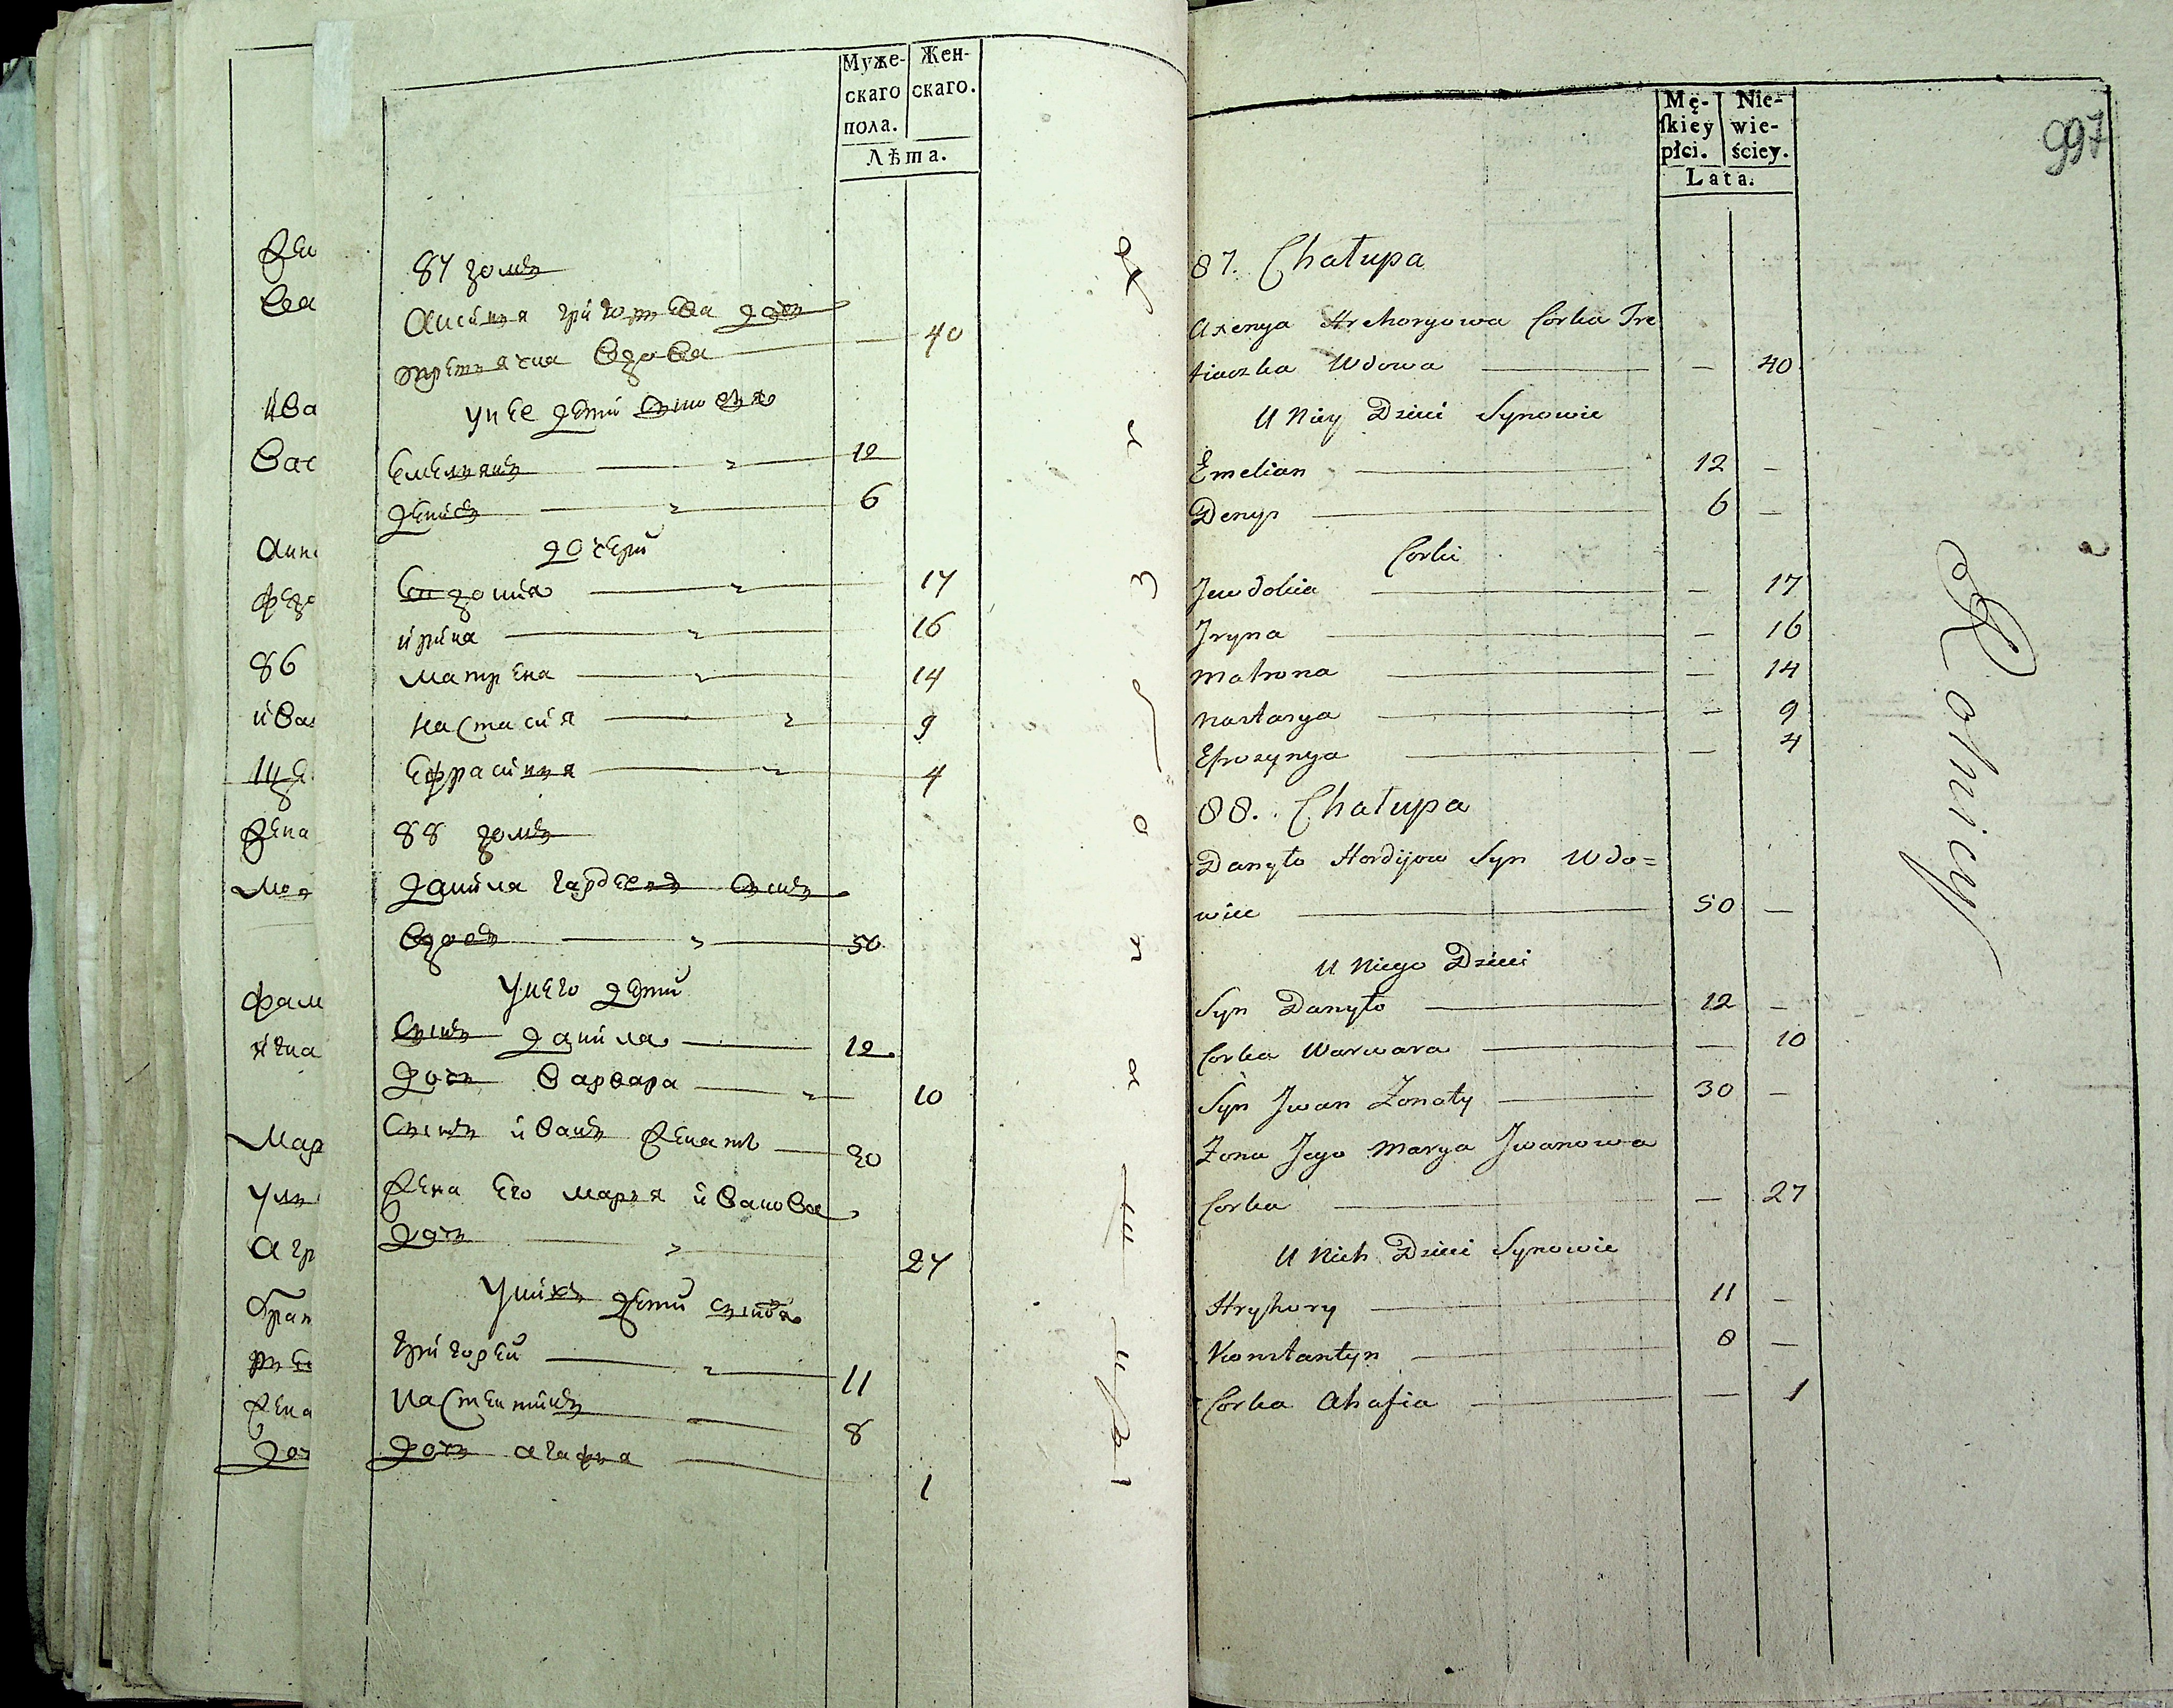 Фeн
Вa
ива
Вас
Анн
федо
86
ива
Же
Жена
Мa
фам
Мар
Улі
Агр
брат
Жена
доч
Муже-
скаго
пола.
Жен-
скаго.
Лѣта.
87 домъ
Аксиния григорьева дочь
третячка вдова 40
у нее дети сыновья
Емельянъ 12
Денисъ 6
дочери
Евдокия 17
ирина 16
матрена 14
настасия 9
Ефрасиния 4
88 домъ
данила гардеевъ сынъ
вдовъ 50
у него дети
сынъ данила 12.
дочь варвара 10
сынъ иванъ женатъ 30
Жена его марья иванова
дочь 27
у нихъ дети сыновья
григорей 11
кастентинъ 8
дочь агафья 1
Mę-
ſkiey
płci.
Nie-
wie-
ściey.
Lata.
997
87. Chałupa
Axenya Hrehoryowa Corka Tre
tiaczka Wdowa — 40
U Niey Dzieci Synowie
Emelian 12 —
Denys 6 —
Corki
Jewdokia — 17
Jryna — 16
Matrona — 14
Nastasya — 9
Efrozynya — 4
88. Chałupa
Danyło Hordijow Syn Wdo=
wiec 50 —
U Niego Dzieci
Syn Danyło 12 —
Corka Warwara — 10
Syn Jwan Żonaty 30 —
Żona Jego Marya Jwanowa
Corka — 27
U Nich Dzieci Synowie
Hryhory 11 —
Konstantyn 8 —
Corka Ahafia — 1
Rolnicy